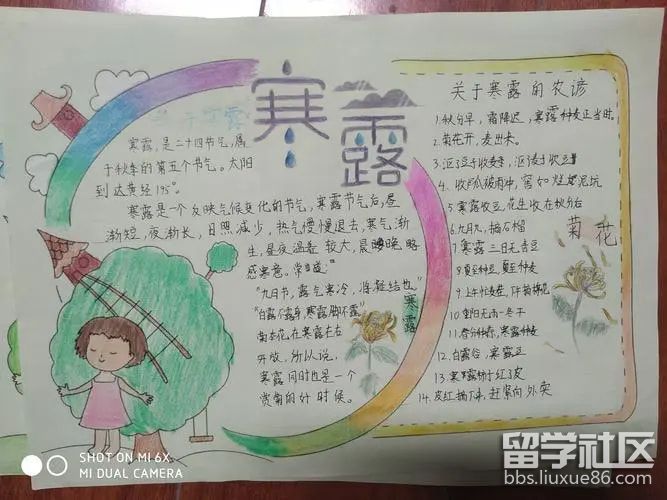 寒露
寒露,是二十四节气,属
于秋季的第五个节气。太阳
到达黄经195°。
寒露是一个反映气候变化的节气,寒露节气后,昼
渐短,夜渐长,日照减少,热气慢慢退去,寒气渐
生,昼夜温差较大,晨晚略
感寒意。
"九日节,露气寒冷,将凝结也"
"白露不露身,寒露脚不露"
菊花,在寒露左右
开放,所以说,
寒露同时也是一个
赏菊的好时候。
寒露
关于寒露的农谚
1.秋分早,霜降迟,寒露种麦正当时。
2.菊花开,麦出来。
4.收
5.寒露收豆,花生收在秋分后
6.九月八,摘石榴
7.寒露三日无青豆
8.夏至种豆,
9.上午忙麦茬,下午摘棉花
10.重阳无雨一冬干
11.春分种春,寒露种麦
12.白露谷,寒露豆
13.寒露柿子红了皮
14.皮红摘下来,赶紧向外卖
菊花
SHOT ON MI 6X
MI DUAL CAMERA
留学社区
bbs.liuxue86.com